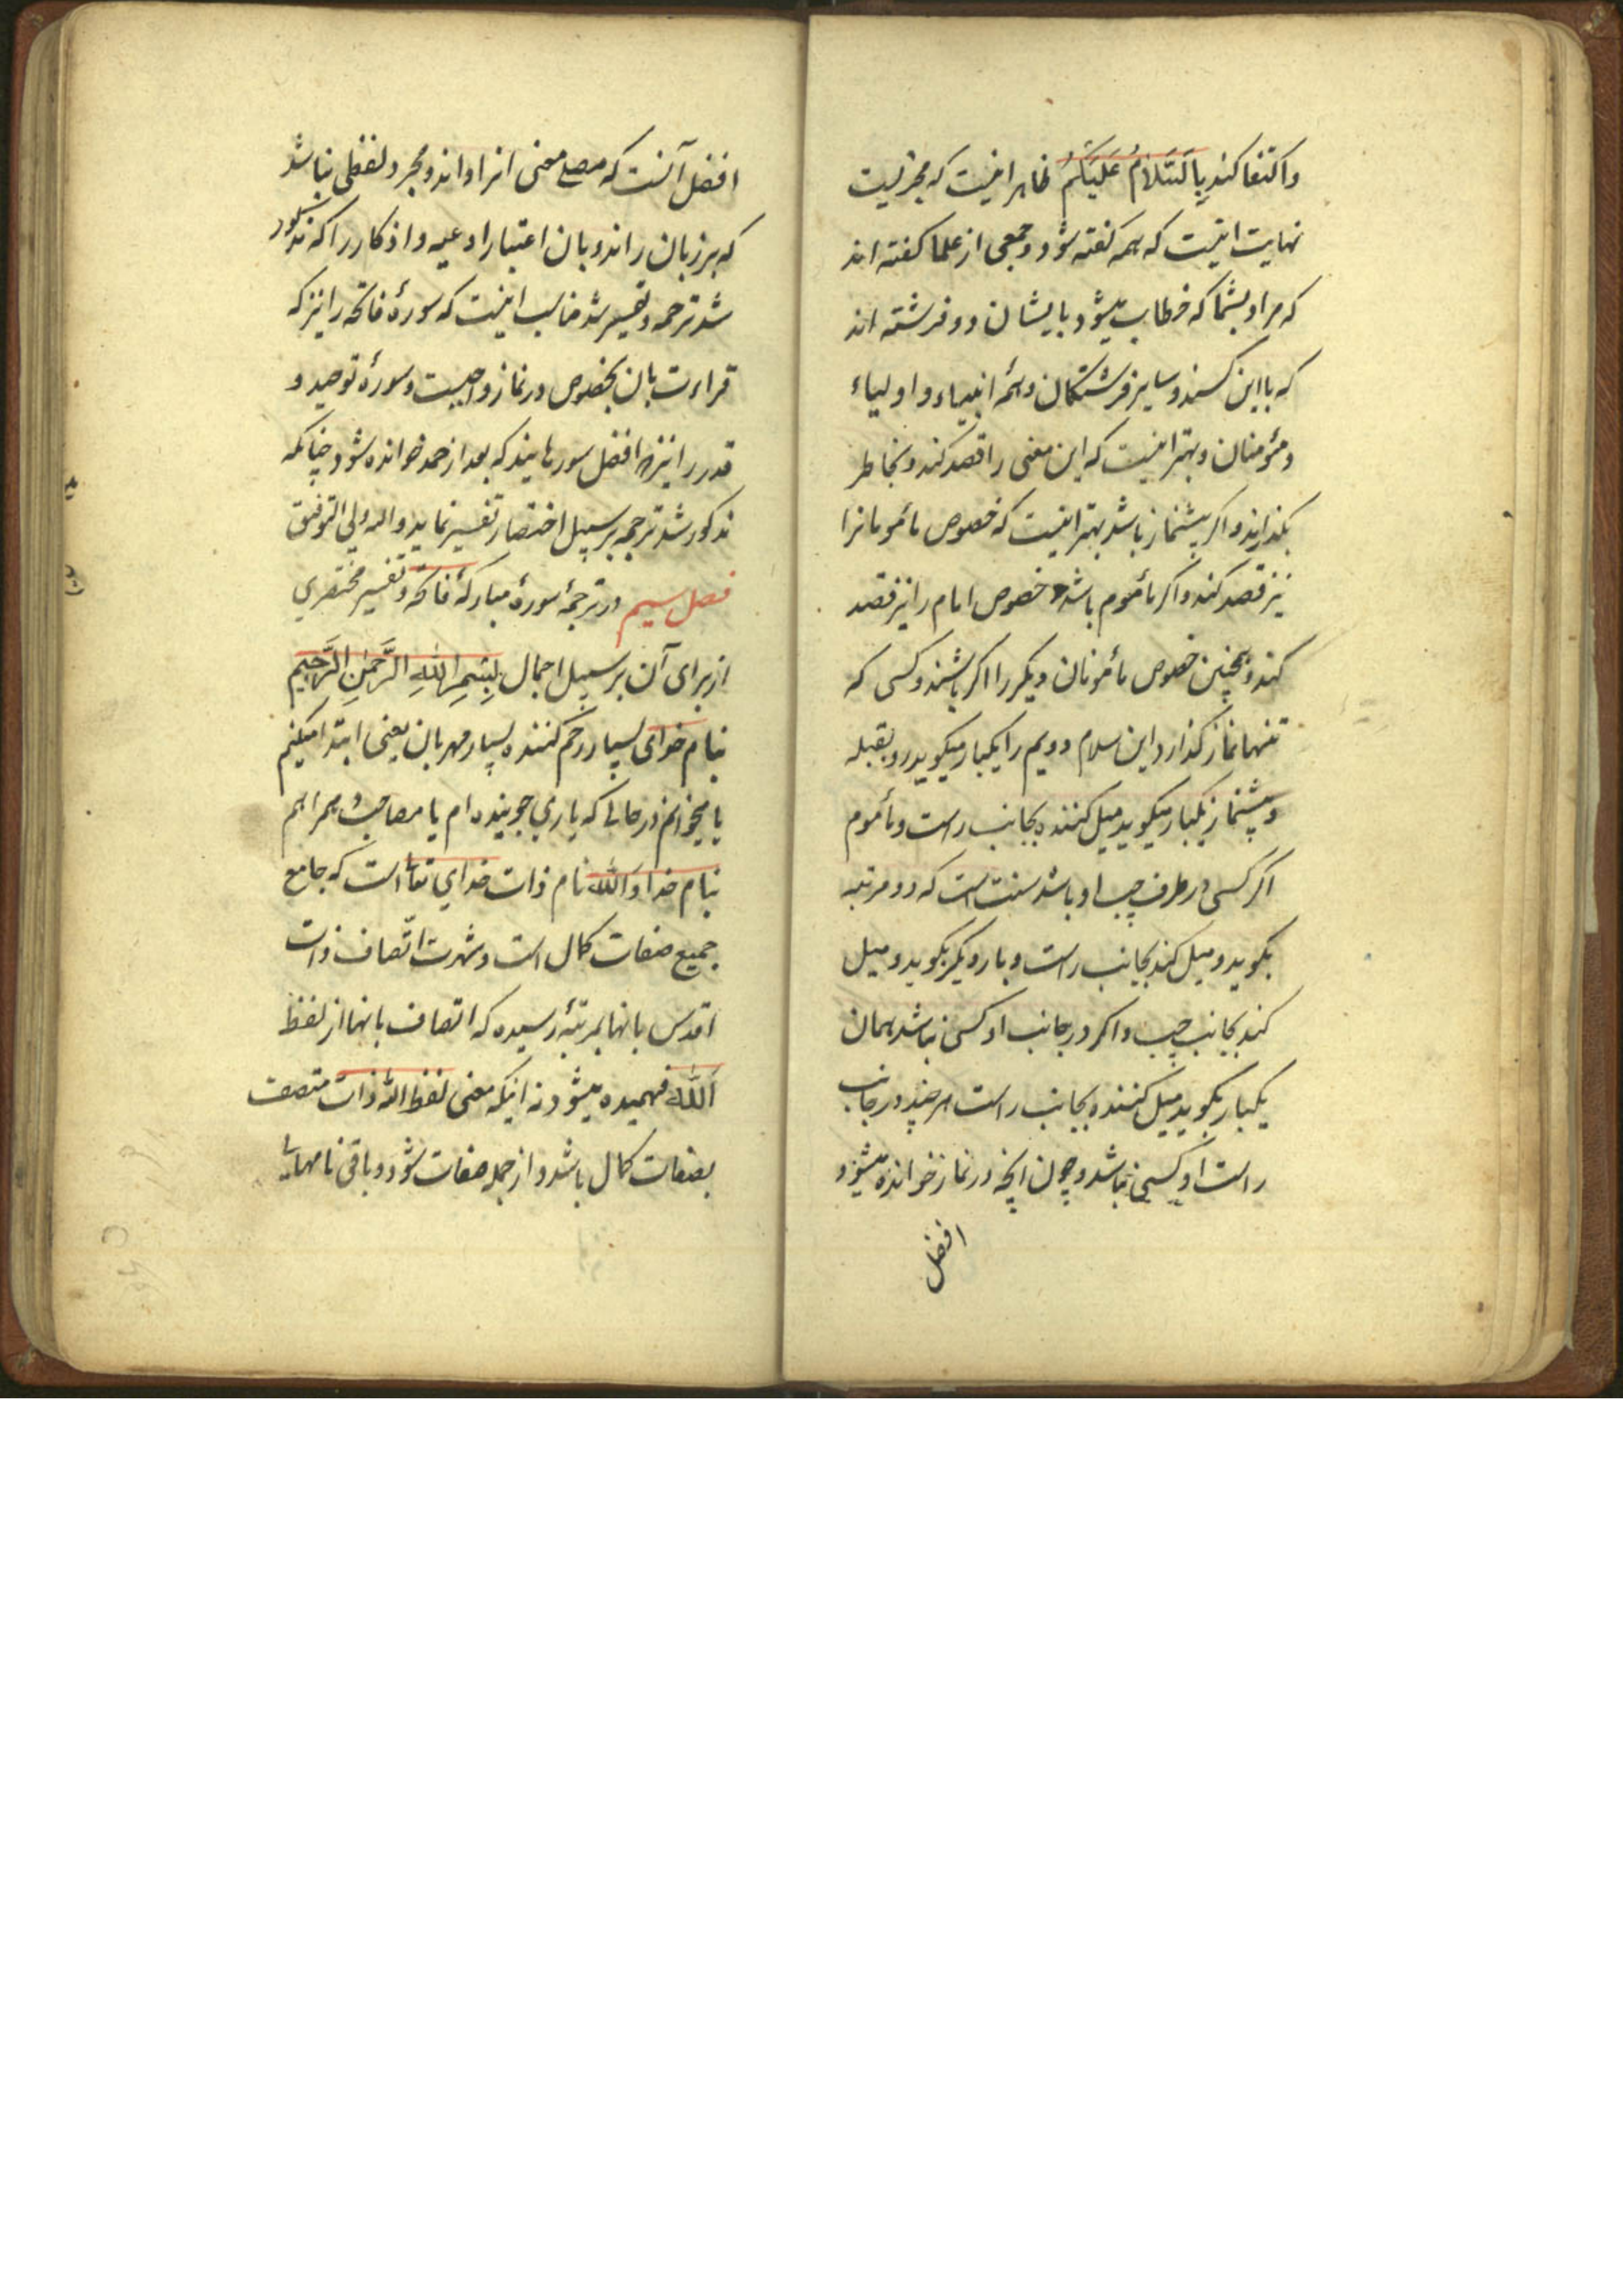 واکتفا کند بِالسَّلامُ عَلَیکُم ظاهر اینست که مجزیست
نهایت اینست که همه کفته شود و جمعی از علما کفته اند
که مراد بشما که خطاب میشود بایشان دو فرشته اند
که با این کسند و سایر فرشتکان و ائمه انبیاء و اولیاء
و مؤمنان و بهتر اینست که این معنی را قصد کند و بخاطر
بکذراند و اکر پیشنماز باشد بهتر اینست که خصوص مأمومانرا
نیز قصد کند و اکر مأموم باشد خصوص امام را نیز قصد
کند و همچنین خصوص مأمومان دیکر را اکر باشند و کسی که
تنها نماز کذارد این سلام دویم را یکبار میکوید رو بقبله
و پیشنماز یکبار میکوید میل کننده بجانب راست و مأموم
اکر کسی در طرف چپ او باشد سنت است که دو مرتبه
بکوید و میل کند بجانب راست و بار دیکر بکوید و میل
کند بجانب چپ و اکر در جانب او کسی نباشد همان
یکبار بکوید میل کننده بجانب راست هر چند در جانب
راست او کسی نباشد و چون انچه در نماز خوانده میشود
افضل
افضل آنست که مصلی معنی انرا داند و مجرد لفظی نباشد
که بر زبان راند و بان اعتبار ادعیه و اذکار را که مذکور
شد ترجمه و تفسیر شد مناسب اینست که سورهٔ فاتحه را نیز که
قراءت بان بخصوص در نماز واجبست و سورهٔ توحید و
قدر را نیز که افضل سورهایند که بعد از حمد خوانده شود چنانکه
مذکور شد ترجمه بر سبیل اختصار تفسیر نماید والله ولی التوفیق
فصل سیم در ترجمهٔ سورهٔ مبارکهٔ فاتحه و تفسیر مختصری
از برای آن بر سبیل اجمال بِسْمِ اللّٰهِ الرَّحمٰنِ الرَّحیمِ
بنام خدای بسیار رحم کننده بسیار مهربان یعنی ابتدا میکنم
یا میخوانم در حالی که یاری جوینده ام یا مصاحب و همراهم
بنام خدا و اَللّٰه نام ذات خدای تعالی است که جامع
جمیع صفات کمال است و شهرت اتّصاف ذات
اقدس بانها بمرتبهٔ رسیده که اتصاف بانها از لفظ
اَللّٰه فهمیده میشود نه اینکه معنی لفظ اللّٰه ذات متصف
بصفات کمال باشد و از جمله صفات شود و باقی نامهای